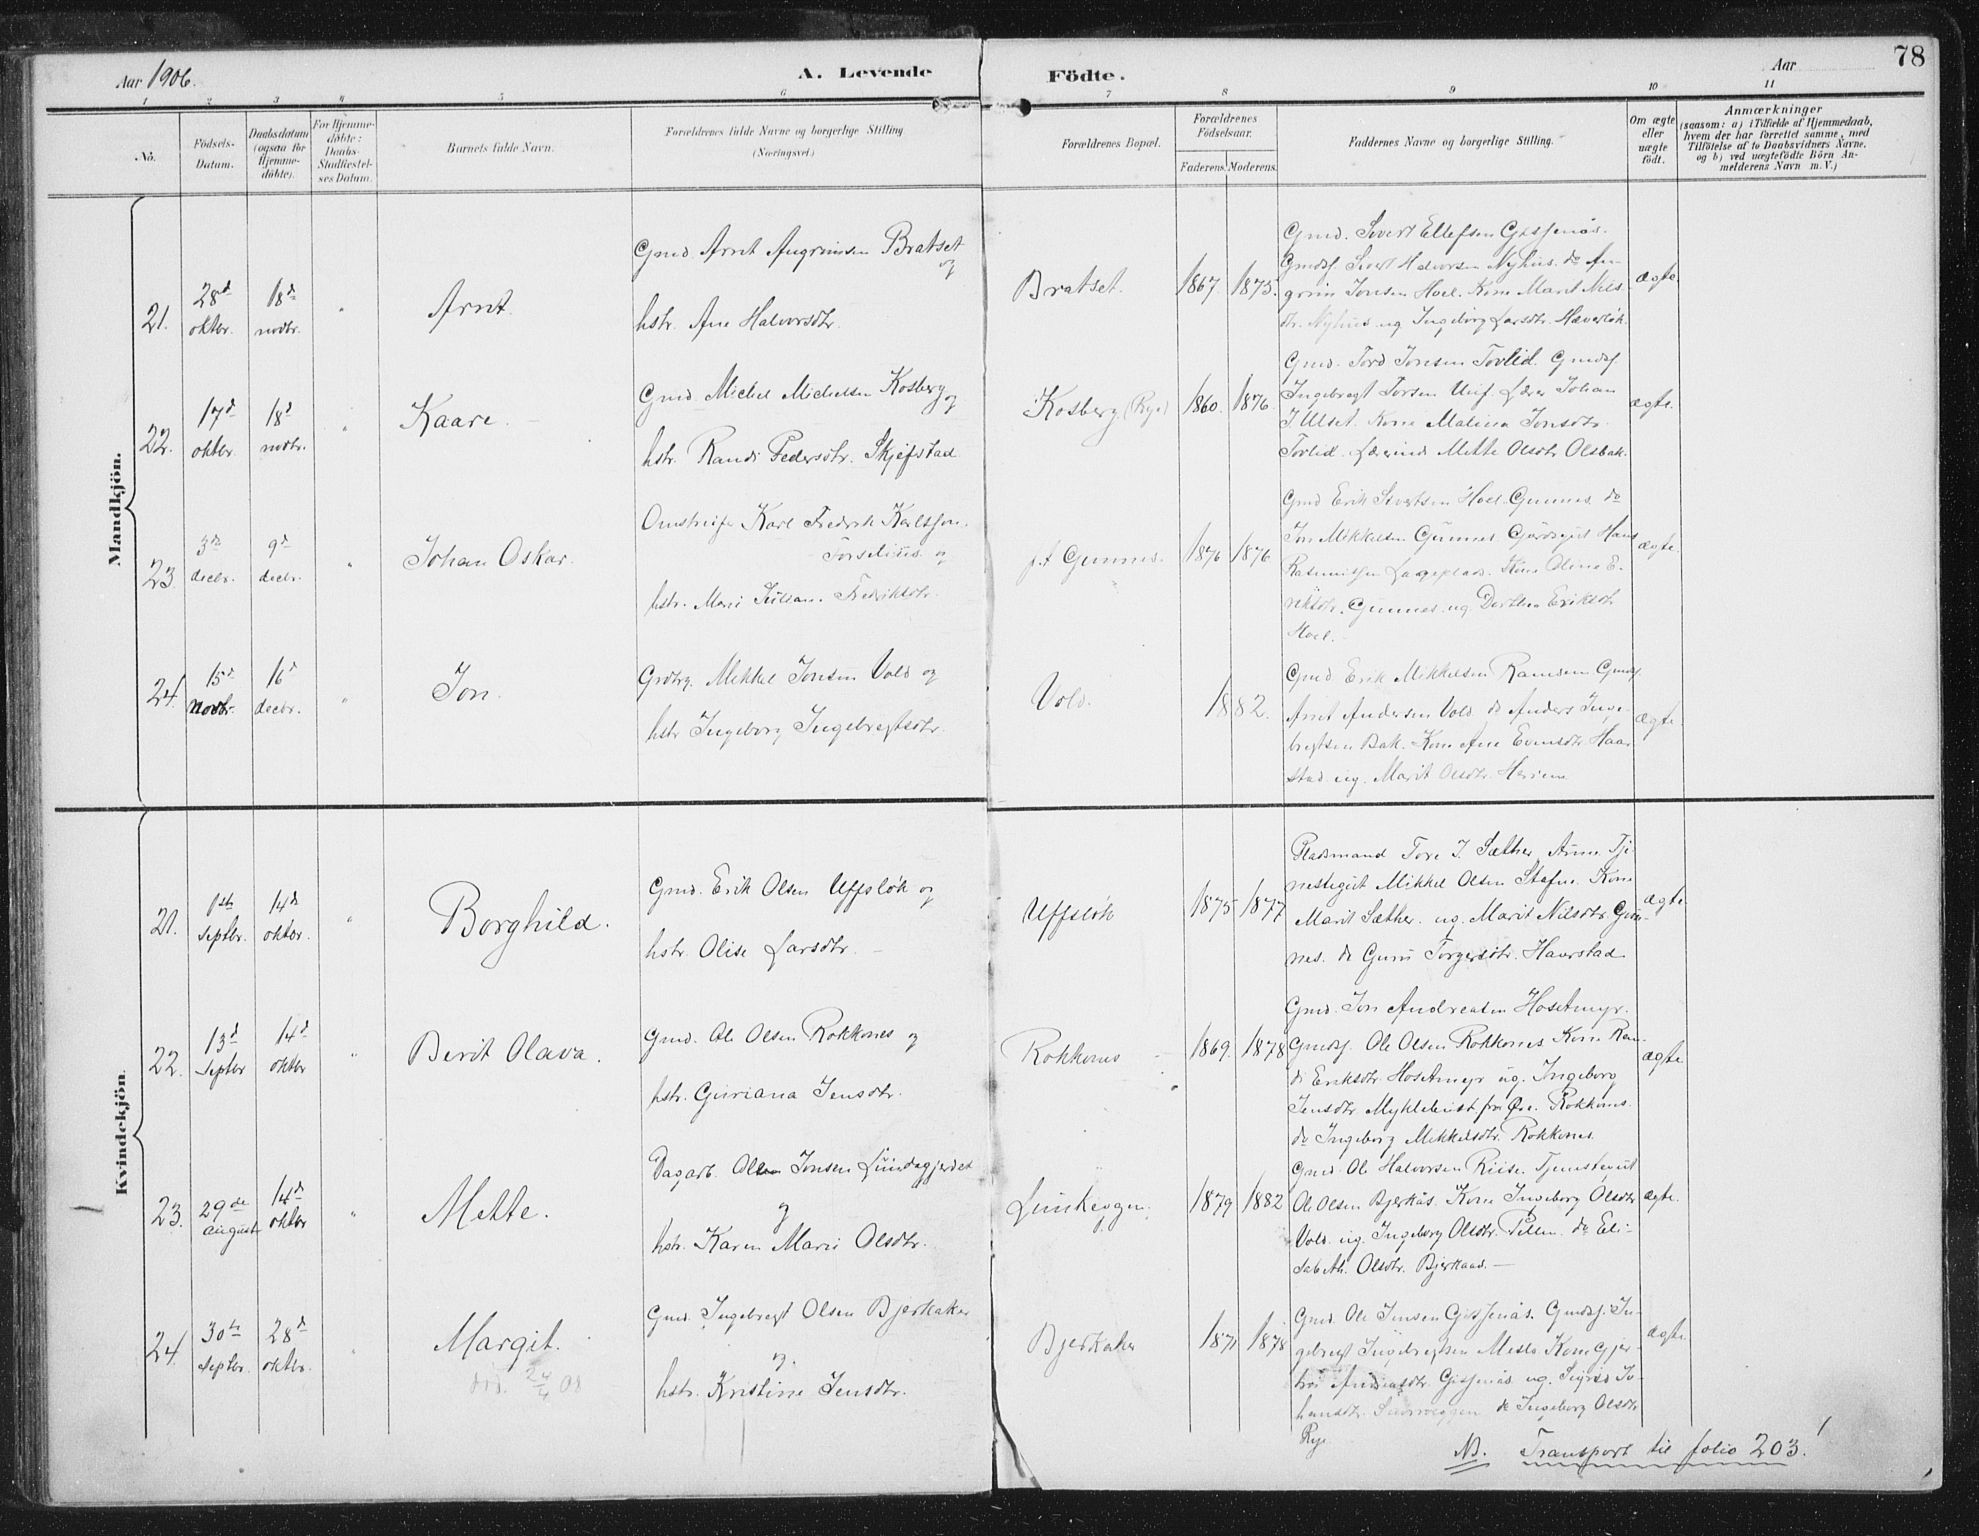 78
Aar 1906.
A. Levende
Födte.
Aar
1 2 3 4 5 6 7 8 9 10 11
No.
Födsels-
Datum.
Daabsdatum
(ogsaa for
Hjemme-
döbte).
For Hjemme-
döbte:
Daabs-
Stadfæstel-
ses Datum.
Barnets fulde Navn.
Forældrenes fulde Navne og borgerlige Stilling
(Næringsvei.)
Forældrenes Bopæl.
Forældrenes
Födselsaar.
Faderens. Moderens.
Faddernes Navne og borgerlige Stilling.
Om ægte
eller
uægte
födt.
Anmærkninger
(saasom: a) i Tilfælde af Hjemmedaab,
hvem der har forrettet samme, med
Tilföielse af to Daabsvidners Navne.
og b) ved uægtefödte Börn An-
melderens Navn m.V.)
Mandkjön.
21.
28d
oktbr.
18d
novbr.
"
Arnt.
Gmd. Arnt Angrimsen Bratset
og
hstr. Ane Halvorsdtr.
Bratset.
1867. 1875.
Gmd. Sivert Ellefsen
Gmdsf. Sivert Halvorsen Nyhus. do An-
grim Jonsen Hoel. Kone Marit Nils-
dtr. Nyhus og Ingeborg Larsdtr.
ægte.
22.
17d
oktbr.
18d
novbr.
"
Kaare.
Gmd. Michel Michelsen Kosberg
og
hstr. Randi Pedersdtr. Skjefstad
Kosberg (Rye)
1860. 1876.
Gmd. Tord Jonsen Tovlid. Gmdsf.
Ingebregt Torsen Lærer Johan
J. Ulset. Kone Malina Jonsdtr.
Tovlid. Lærerinde Mette Olsdtr. Olsbak.
ægte.
23.
3d
decbr.
9d
decbr.
"
Johan Oskar.
Karl Fredrik Karlsson
og
hstr. Fredriksdtr.
p.t. Gunnes.
1876 1876
Gmd Erik Sivertsen Hoel Gunnes. do
Jon Mikkelsen Gunnes. Gaardsgut Hans
Kone Oline E-
riksdtr. Gunnes og Dorthea Eriksdtr.
Hoel.
ægte.
24.
15d
novbr.
16d
decbr.
"
Jon.
Mikkel Jonsen Vold og
hstr Ingeborg Ingebregtsdtr.
Vold.
1882.
Gmd Erik Mikkelsen Ramsem Gmdsf.
Arnt Andersen Vold. do Anders Inge-
bregtsen Bak. Kone Ane Evensdtr. Haar-
stad og Marit Olsdtr.
ægte.
Kvindekjön
21.
1ste
septbr.
14d
oktbr.
"
Borghild.
Gmd. Erik Olsen Uffsløk og
hstr. Olise Larsdtr.
Uffsløk
1875 1877
Pladsmand Tore J. Sæther, Tje-
nestegut Mikkel Olsen Stafne. Kone
Marit Sæther og Marit Nilsdtr. Gun-
nes. do Guru Torgersdtr. Haarstad
ægte
22.
13d
septbr
14d
oktbr
"
Berit Olava.
Gmd. Ole Olsen Rokkones og
hstr. Guriana Jensdtr.
Rokkones
1869. 1878
Gmd. Jon Andreasen Hosetmyr.
Gmdsf. Ole Olsen Rokkones Kone Ran-
di Eriksdtr. Hosetmyr og Ingeborg
Jensdtr Myklebust fra Øre. Rokkones.
do Ingeborg Mikkelsdtr. Rokkones.
ægte
23.
29de
august
14d
oktbr
"
Mette.
Dagarb. Ole Jonsen Lundagjerdet
og
hstr. Karen Marie Olsdtr.
1879 1882
Gmd. Ole Halvorsen Riise. Tjenestegut
Ole Olsen Bjerkås. Kone Ingeborg Olsdtr
Vold. og Ingeborg Olsdtr. do Eli-
sabeth. Olsdtr. Bjerkaas.
ægte.
24.
30te
septbr.
28d
oktbr.
"
Margit.
død. 24/4 08
Gmd. Ingebregt Olsen Bjerkaker
og
hstr. Kristine Jensdtr.
Bjerkaker
1871 1878
Gmd Ole Jensen Gisnås. Gmdsf. In-
gebregt Ingebregtsen Meslo Kone Gjer-
trud og Sigrid Jo-
hansdtr. do Ingeborg Olsdtr
Rye
ægte.
NB. Transport til folio 203.